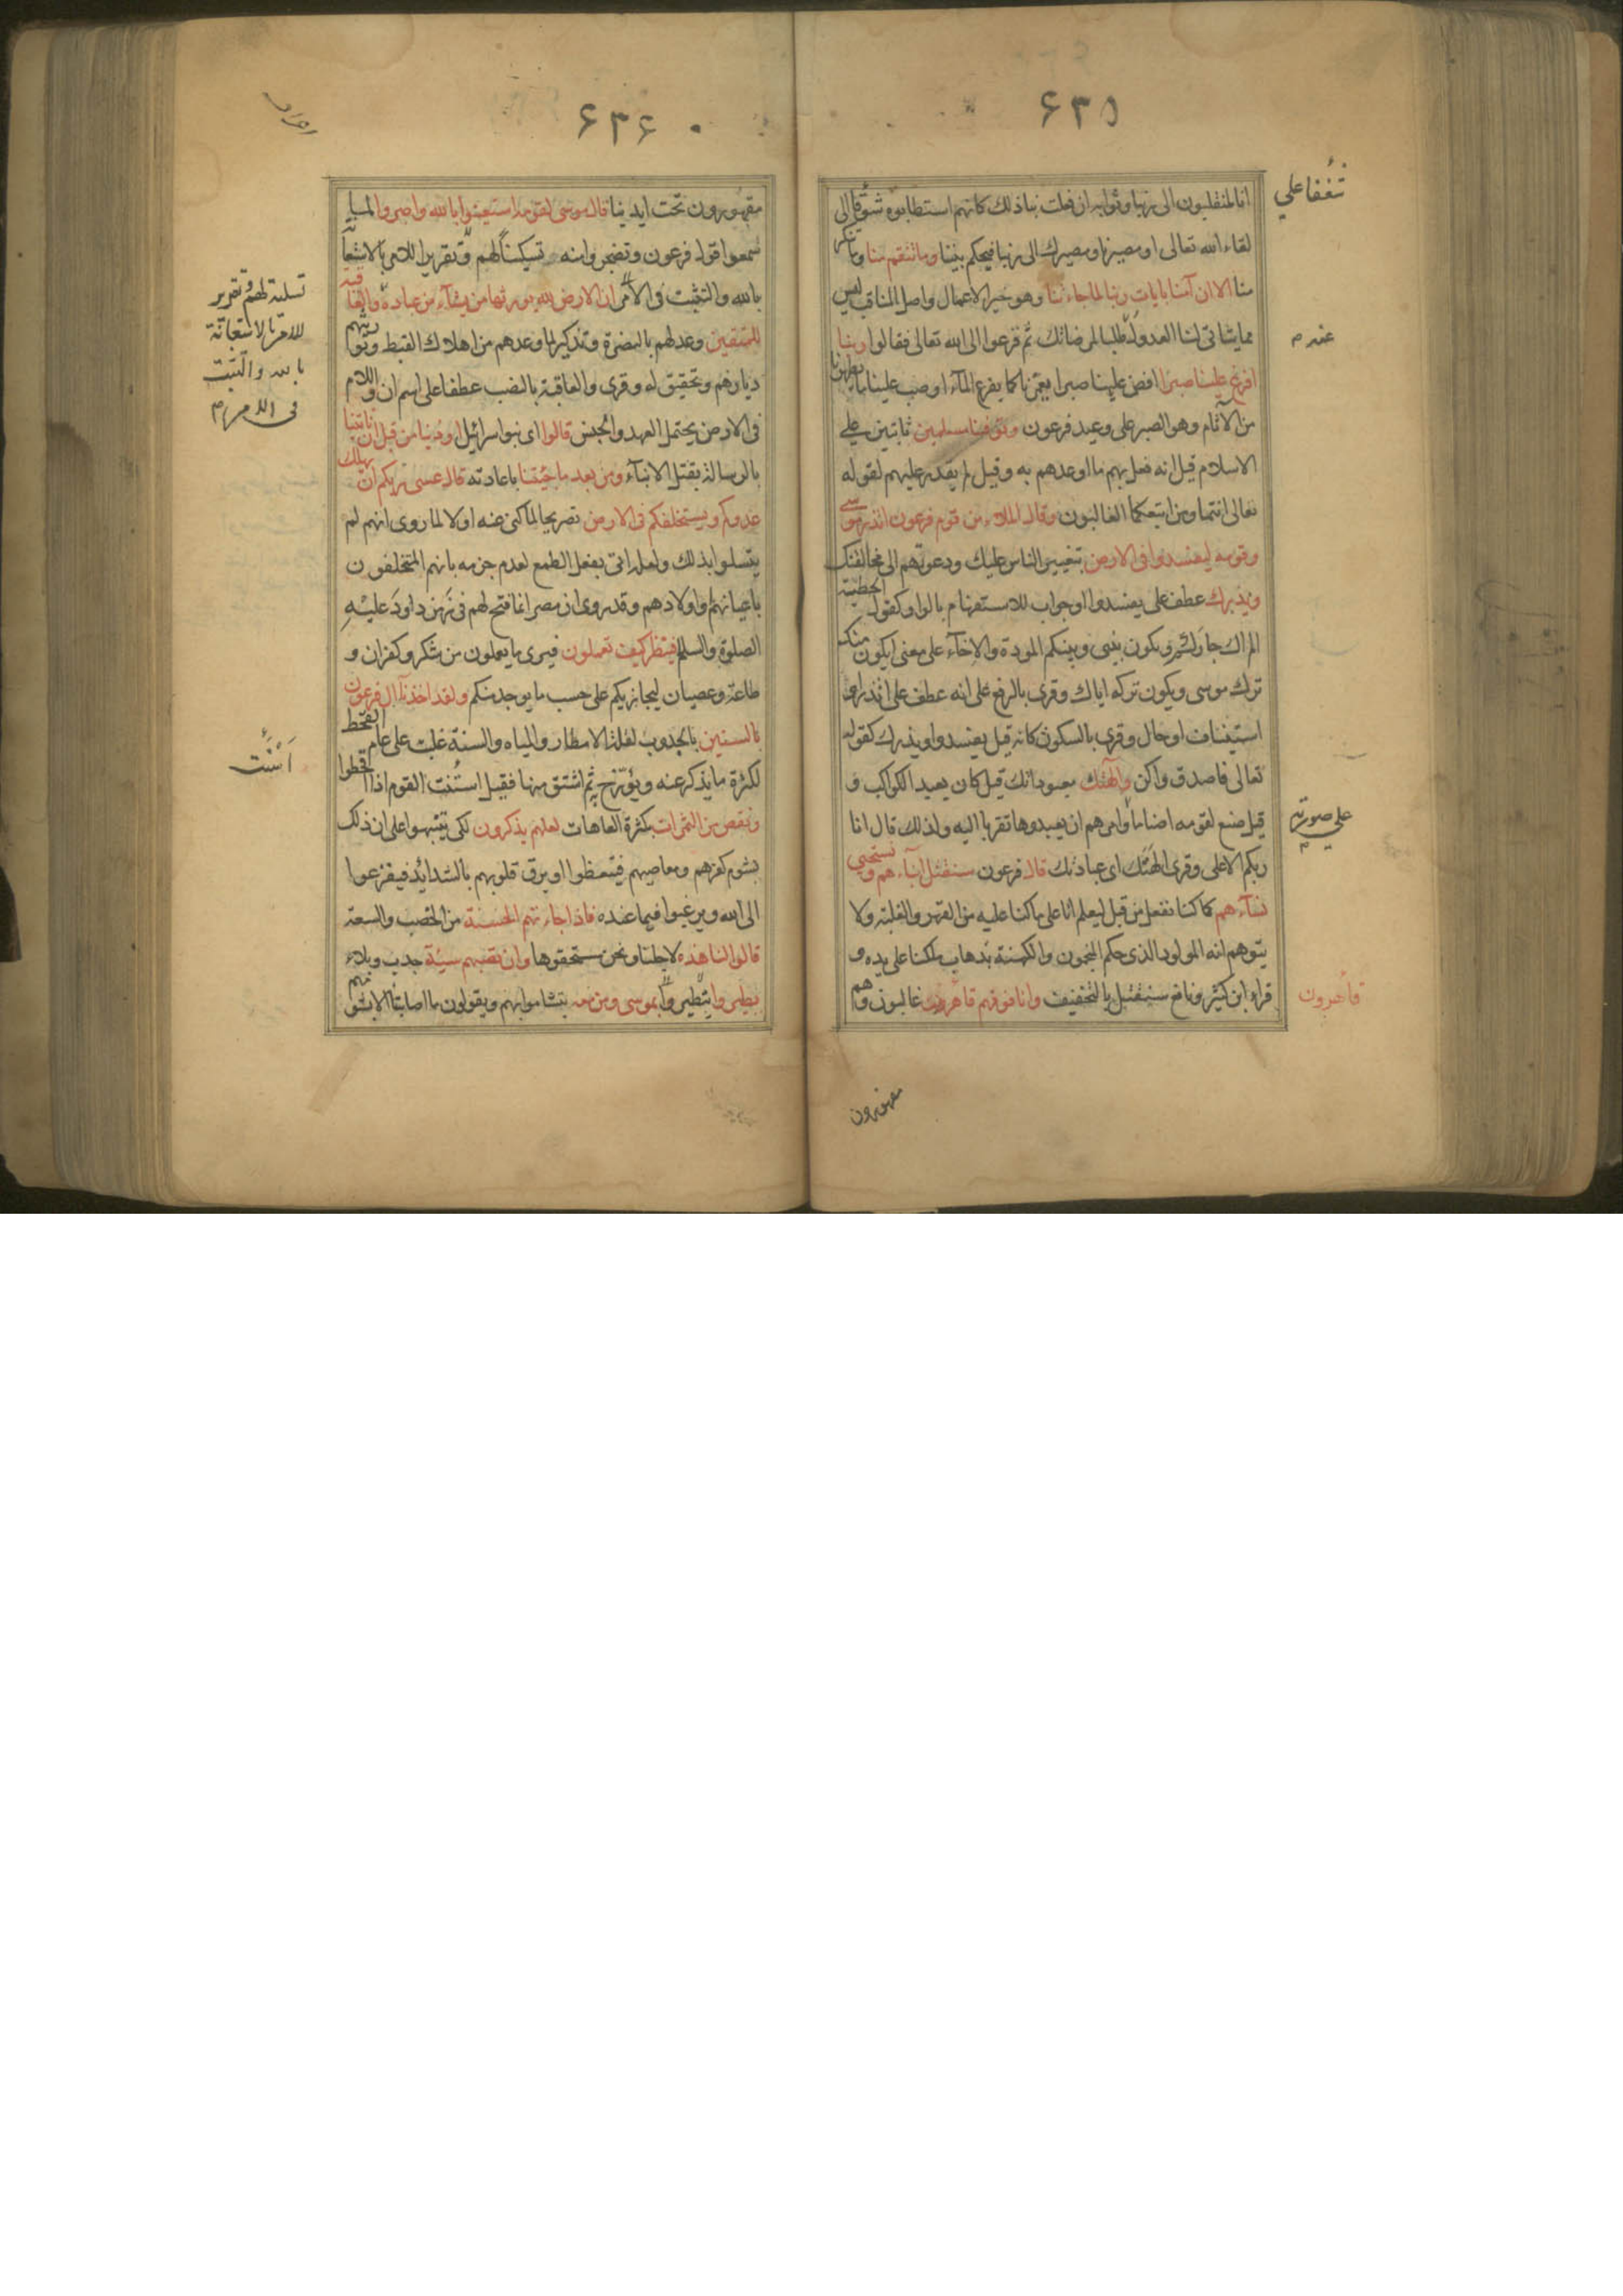 ۶۳۵
انا لمنقلبون الى ربنا وثوابه ان فعلت بنا ذلك كانهم استطابوه شوقا الى
لقاء الله تعالى او مصيرنا ومصيرك الى ربنا فيحكم بيننا وما تنقم منا وما تنكر
منا الا ان آمنا بايات ربنا لما جاءتنا وهو خير الاعمال واصل المناقب ليس
مما يتاتى لنا العدول طلبا لمرضاتك ثم فزعوا الى الله تعالى فقالوا ربنا
افرغ علينا صبرا افض علينا صبرا يغمرنا كما يفرغ المآء او صب علينا ما يطهرنا
من الآثام وهو الصبر على وعيد فرعون وتوفنا مسلمين ثابتين على
الاسلام قيل انه فعل بهم ما اوعدهم به وقيل لم يقدر عليهم لقوله
تعالى انتما ومن اتبعكما الغالبون وقال الملاء من قوم فرعون اتذر موسى
وقومه ليفسدوا فى الارض بتغيير الناس عليك ودعوتهم الى مخالفتك
ويذرك عطف على يفسدوا او جواب للاستفهام بالواو كقول الحطيئة
الم اك جاركم ويكون بينى وبينكم المودة والاخآء على معنى ايكون منك
ترك موسى ويكون تركه اياك وقرى بالرفع على انه عطف على اتذر او
استيناف او حال وقرى بالسكون كانه قيل يفسدوا ويذرك كقوله
تعالى فاصدق واكن وآلهتك معبوداتك قيل كان يعبد الكواكب و
قيل صنع لقومه اصناما وامرهم ان يعبدوها تقربا اليه ولذلك قال انا
ربكم الاعلى وقرى الهتك اى عبادتك قال فرعون سنقتل ابنآءهم ونستحيى
نسآءهم كما كنا نفعل من قبل ليعلم انا على ما كنا عليه من القهر والغلبة ولا
يتوهم انه المولود الذى حكم المنجمون والكهنة بذهاب ملكنا على يده و
قراء ابن كثير ونافع سنقتل بالتخفيف وانا فوقهم قاهرون غالبون وهم
شغفا على
عندم
على صورته
قاهرون
مقهورون
۶۳۶
مقهورون تحت ايدينا قال موسى لقومه استعينوا بالله واصبروا لما
سمعوا قول فرعون وتضجروا منه تسكينا لهم وتقريرا للامر بالاستعا
بالله والتثبت فى الامر ان الارض لله يورثها من يشآء من عباده والعاقبة
للمتقين وعد لهم بالنصرة وتذكير لما وعدهم من اهلاك القبط وتوريثهم
ديارهم وتحقيق له وقرى والعاقبة بالنصب عطفا على اسم ان واللام
فى الارض يحتمل العهد والجنس قالوا اى بنو اسرائيل اوذينا من قبل ان تاتينا
بالرسالة بقتل الابنآء ومن بعد ما جئتنا باعادته قال عسى ربكم ان يهلك
عدوكم ويستخلفكم فى الارض تصريحا لما كنى عنه اولا لما روى انهم لم
يتسلوا بذلك ولعله اتى بفعل الطمع لعدم جزمه بانهم المتخلفون
باعيانهم او اولادهم وقد روى ان مصر انما فتح لهم فى زمن داود عليه
الصلوة والسلم فينظر كيف تعملون فيرى ما يعملون من شكر وكفران و
طاعة وعصيان ليجازيكم على حسب ما يوجد منكم ولقد اخذنا آل فرعون
بالسنين بالجدوب لقلة الامطار والمياه والسنة غلبت على عام القحط
لكثرة ما يذكر عنه ويؤرخ به ثم اشتق منها فقيل استنت القوم اذا اقحطوا
ونقص من الثمرات بكثرة العاهات لعلهم يذكرون لكى يتنبهوا على ان ذلك
بشوم كفرهم ومعاصيهم فيتعظوا او يرق قلوبهم بالشدائد فيفزعوا
الى الله ويرغبوا فيما عنده فاذا جاءتهم الحسنة من الخصب والسعة
قالوا لنا هذه لاجلنا ونحن مستحقوها وان تصبهم سيئة جدب وبلاء
يطيروا يتطيروا بموسى ومن معه يتشاموا بهم ويقولون ما اصابتنا الا بشومهم
تسلية لهم وتقرير
للامر بالاستعانة
بالله والتثبت
فى الامر م
اسنت